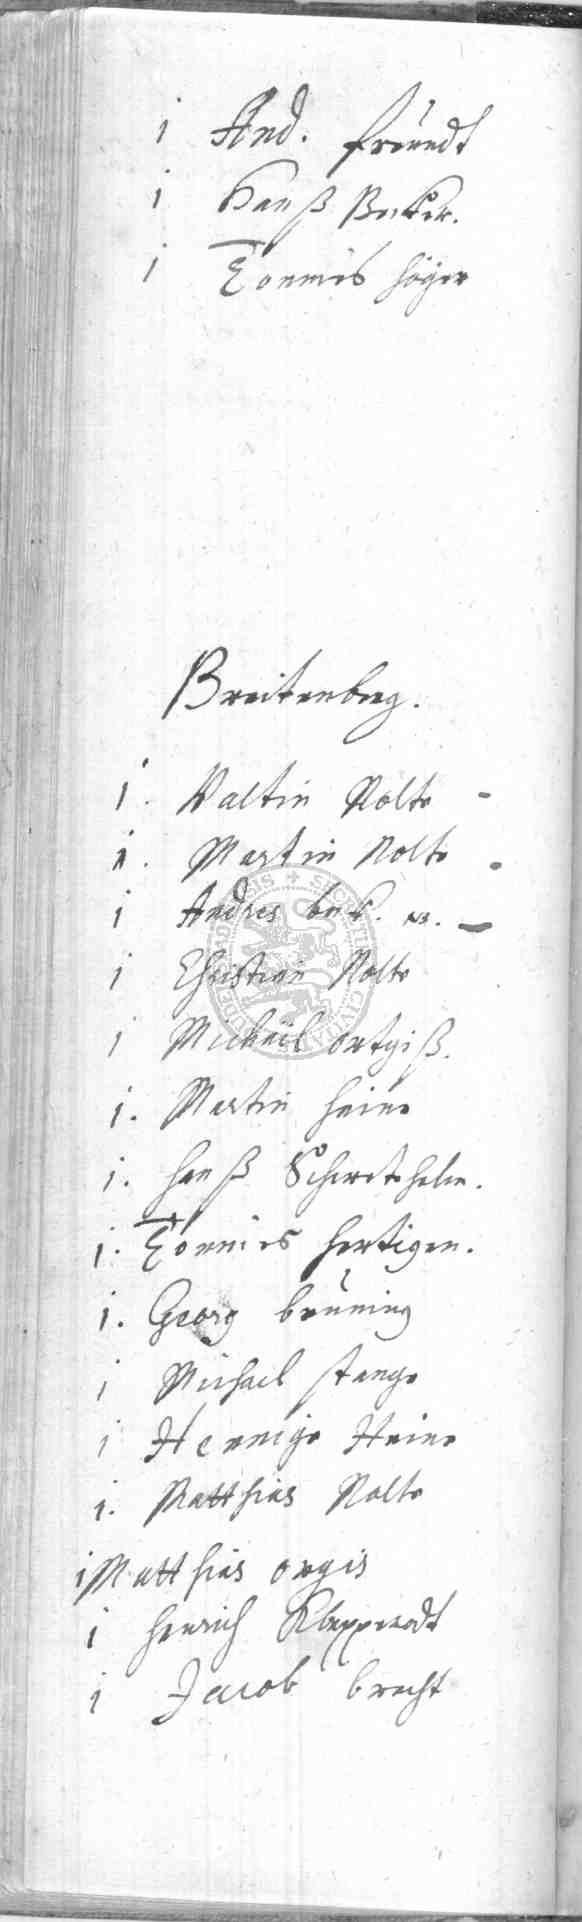 1 And. freundt
1 Hanß Becker.
1 Tonnies Höyer
Breitenberg.
1. Valtin Nolte -
1. Martin Nolte -
1 Andres
1 Christian Nolte
1 Michäil ortgiß.
1. Martin Heine
1. Hanß
1. Tonnies Hertigen.
1. Georg brüning
1 Michael stange
1 Hennige Heine
1. Matthias Nolte
1 Matthias orgis
1 Henrich Klapprodt
1 Jacob brecht